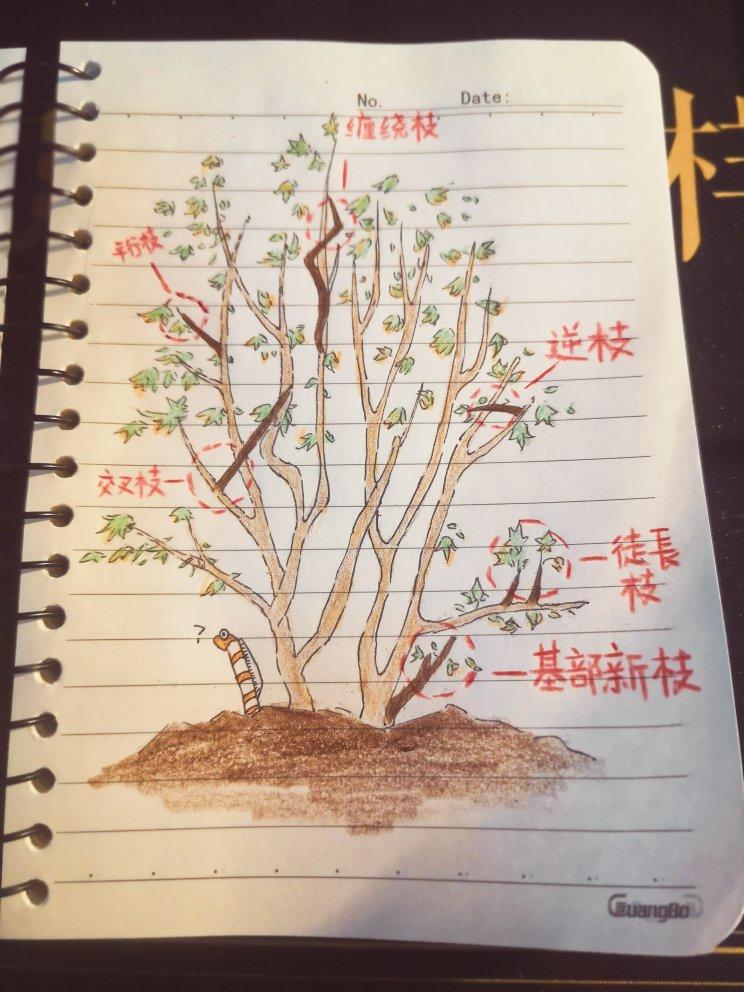 No.
Date:
缠绕枝
平行枝
逆枝
交叉枝
徒長
枝
基部新枝
?
GuangBo